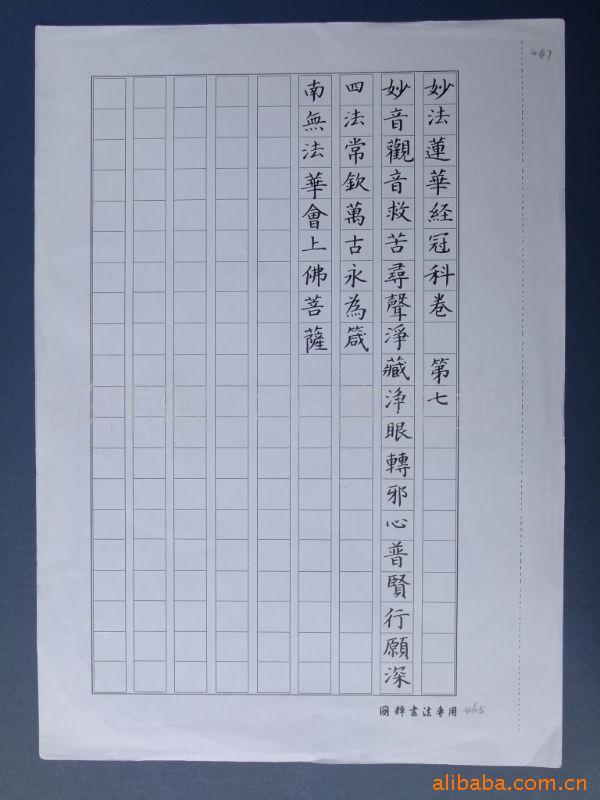 妙法蓮華経冠科卷　第七
妙音觀音救苦尋聲淨藏淨眼轉邪心普賢行願深
四法常欽萬古永為箴
南無法華會上佛菩薩
國粹書法專用
465
447
alibaba.com.cn